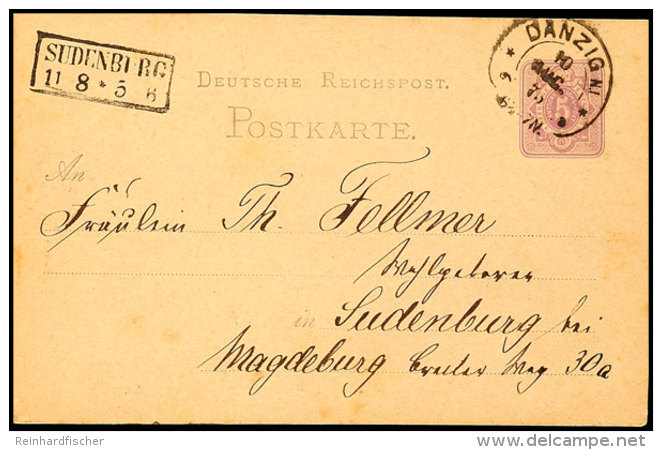 SUDENBURG
11 8 * 5-6
DANZIG N
10
75
DEUTSCHE REICHSPOST.
POSTKARTE.
An
Fräulein Th. Fellmer
Wohlgeboren
in Sudenburg bei
Magdeburg breiter Weg 30a
Reinhardfischer
delcampe.net